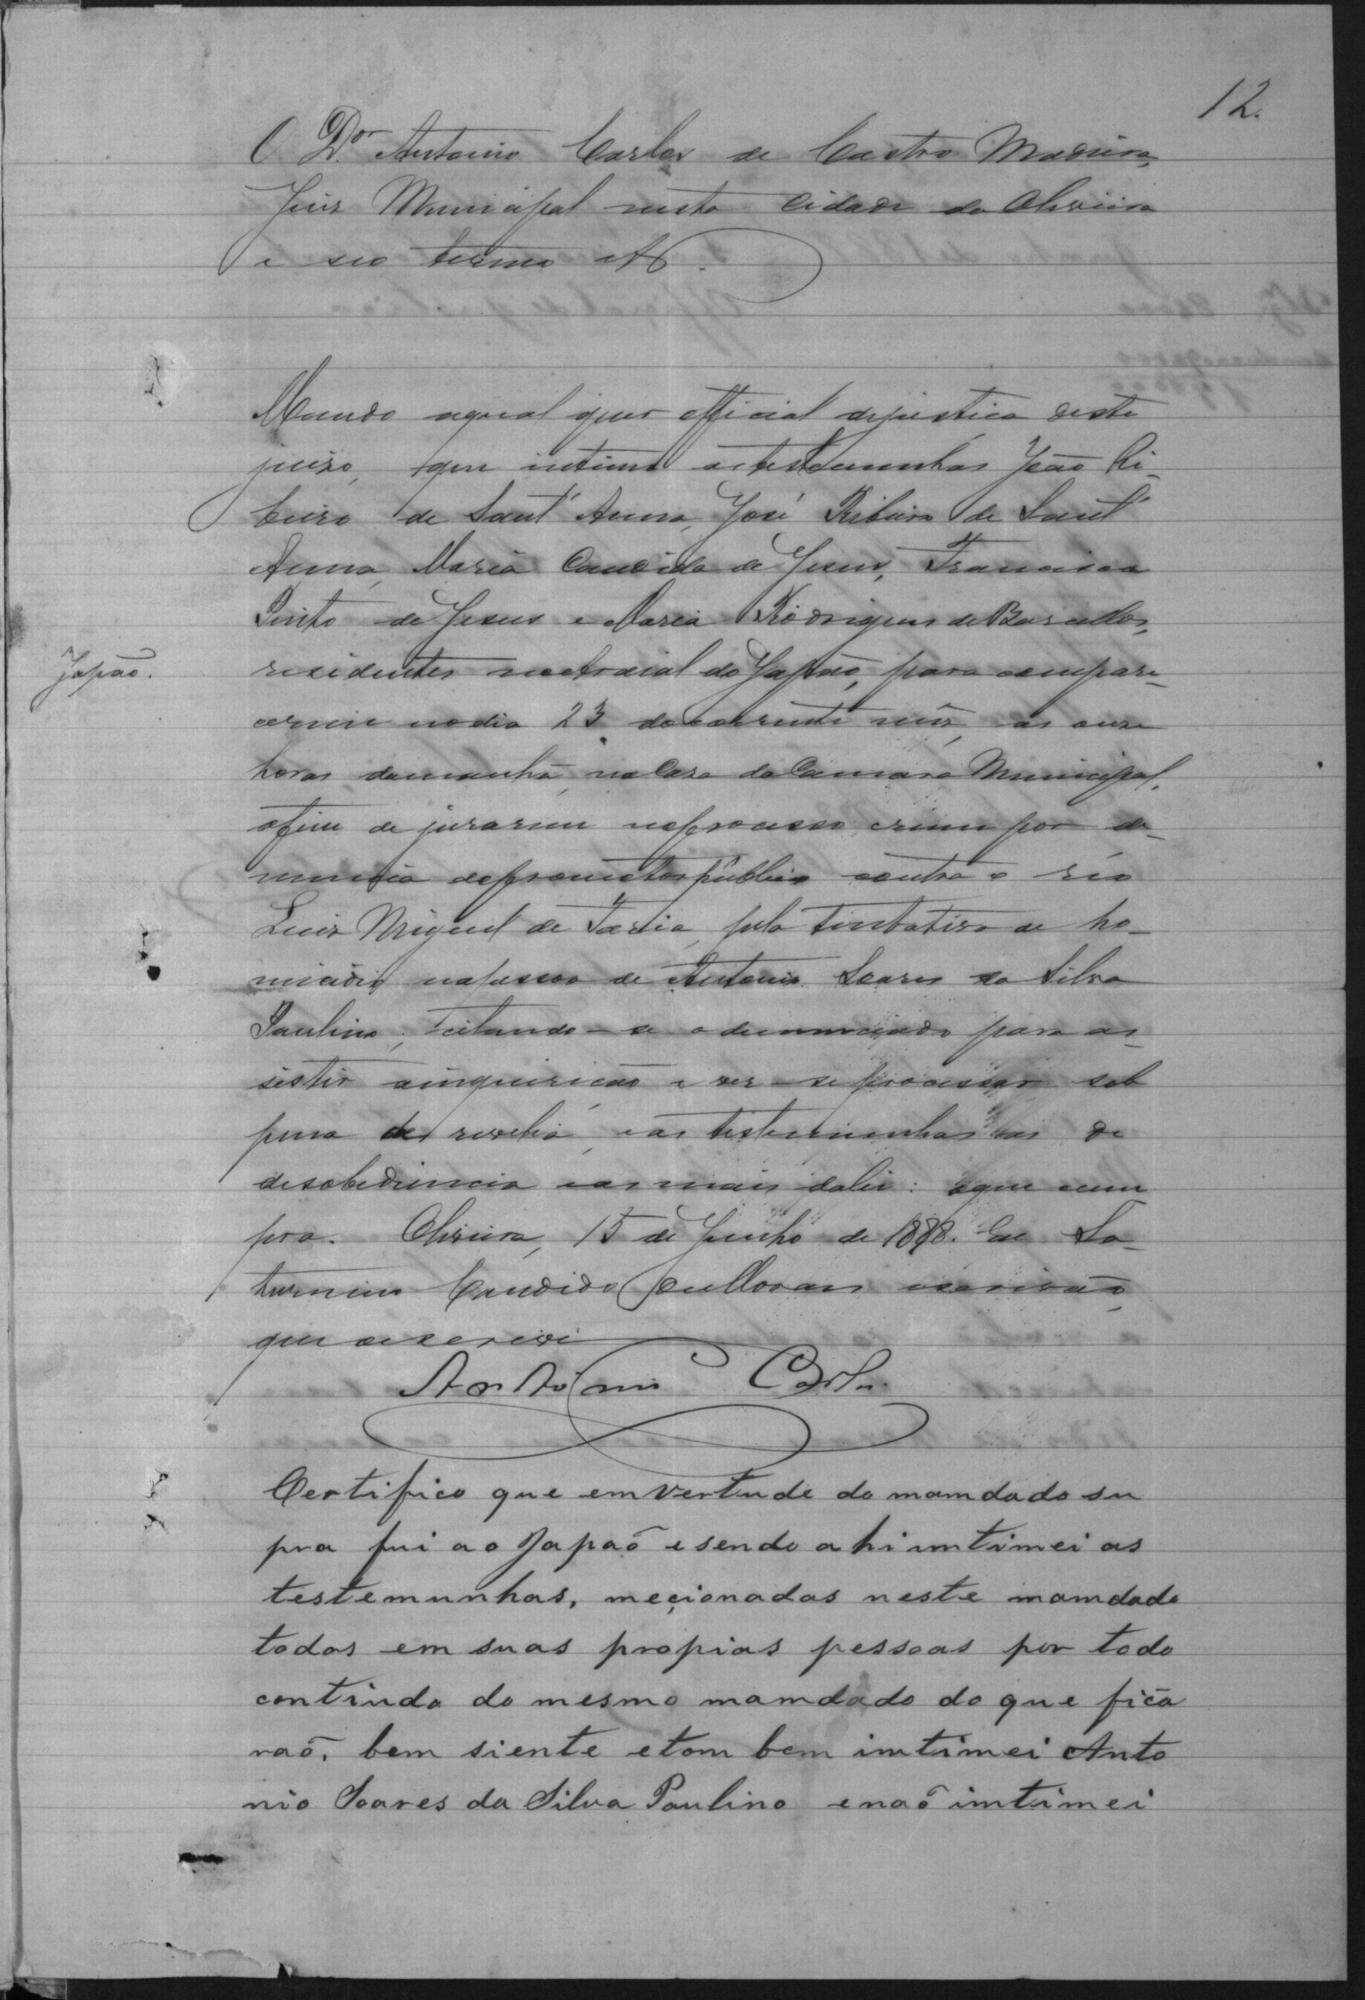 12.
O Dor. Antonio Carlos de Castro Madeira,
Juiz Municipal nesta Cidade da Oliveira
e seo termo etc.
Mando aqual quer official dejustiça deste
juizo, que intime astestemunhas João Ri-
beiro de Sant'Anna, José Ribeiro de Sant'
Anna, Maria Candida de Jesus, Francisca
Pinto de Jesus e Maria Rodrigues de Barcellos,
Japão.
residentes noArraial do Japão, para compare-
cerem nodia 23 docorrente mez, as onze
horas damanhã, naCasa daCamara Municipal,
afim de jurarem noprocesso crime por de-
nuncia dopromotor publico contra o réo
Luiz Miguel de Faria, pela tentativa de ho-
micidio napessoa de Antonio Soares da Silva
Paulino; citando-se odenunciado para as-
sistir ainquirição e ver-seprocessar sob
pena de revelia, eas testemunhas as de
desobediencia eas mais dalei: oque cum
pra. Oliveira, 15 de Junho de 1888. Eu Sa-
turnino Candido escrivão,
que oescrevi
Antonio Carlos
Certifico que emvertude do mamdado su
pra fui ao Japaõ esendo ahi imtimei as
testemunhas, meçionadas neste mamdado
todas em suas propias pessoas por todo
contiudo do mesmo mamdado do que fica
raõ, bem siente etom bem imtimei Anto
nio Soares da Silva Paulino enaõ imtimei